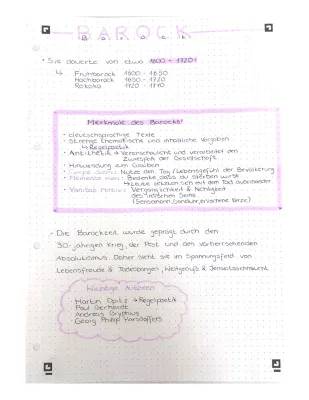 BAROCK
Barock
• Sie dauerte von etwa 1600 - 1720
↳ Frühbarock 1600 - 1650
Hochbarock 1650 - 1720
Rokoko 1720 - 1770
Merkmale des Barocks:
• deutschsprachige Texte
• strenge thematische und inhaltliche Vorgaben
↳ Regelpoetik
• Antithetik → Veranschaulicht und verarbeitet den
Zwiespalt der Gesellschaft
• Hinwendung zum Glauben
• Carpe diem: Nutze den Tag / Lebensgefühl der Bevölkerung
• Memento mori: Bedenke, dass du sterben wirst
↳ Leute setzten sich mit dem Tod auseinander
• Vanitas Motive: Vergänglichkeit & Nichtigkeit
des irdischen Seins
(Sensenmann, Sanduhr, erloschene Kerze)
- Die Barockzeit wurde geprägt durch den
30-jährigen Krieg, der Pest und den vorherrschenden
Absolutismus. Daher sieht sie im Spannungsfeld von
Lebensfreude & Todesbangen, Weltgenuss & Jenseitssehnsucht
Wichtige Autoren
- Martin Opitz → Regelpoetik
- Paul Gerhardt
- Andreas Gryphius
- Georg Philipp Harsdörffers